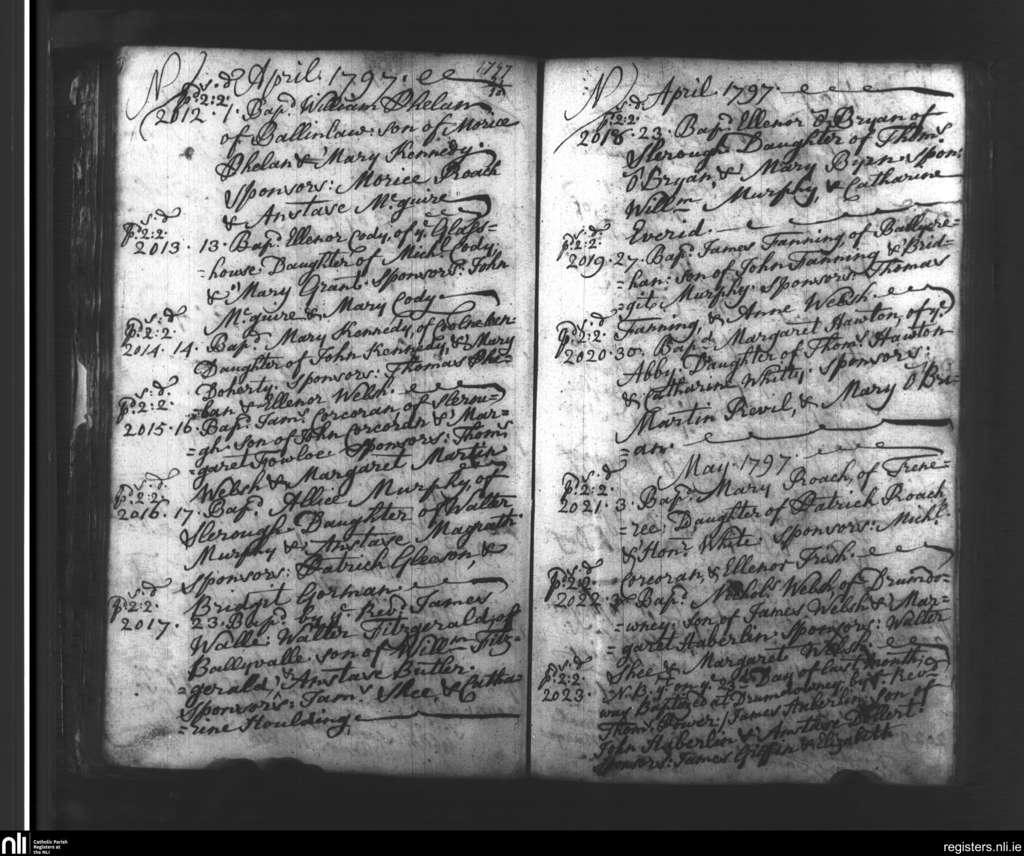 N s. d April. 1797. 1797
pd 2:2
2012. 1. Bapd William Phelan
of Ballinlaw: son of Morice
Phelan & Mary Kennedy.
Sponsors: Morice Roach
& Anstase McGuire
s: d
pd 2:2
2013. 13. Bapd Ellenor Cody, of ye Glass=
=house: Daughter of Michl Cody,
& Mary Grant. Sponsors: John
McGuire & Mary Cody
s. d
pd 2:2
2014. 14. Bapd Mary Kennedy, of
Daughter of John Kennedy, & Mary
Doherty. Sponsors: Thomas Phe=
=lan & Ellenor Welsh.
s: d.
pd 2:2.
2015. 16. Bapd Jams Corcoran of Slerou=
=gh: son of John Corcoran & Mar=
=garet Fowloe Sponsors: Thoms
Welsh & Margaret Martin
s: d
pd 2:2
2016. 17. Bapd Allice Murphy of
Slerough Daughter of Walter
Murphy & Anstase Magrath.
Sponsors: Patrick Gleeson, &
Bridgit Gorman
s. d
pd 2:2.
2017. 23. Bapd by ye Revd James
Walle: Walter Fitzgerald, of
Ballyvalle. son of Willm Fitz=
=gerald, & Anstase Butler.
Sponsors: Jams Shee, & Catha
=rine Houlding.
N April 1797.
s. d
pd 2:2
2018. 23. Bapd Ellenor O Bryan of
Slerough Daughter of Thoms
O Bryan, & Mary Byrn. Spons:
Willm Murphy, & Catharine
Everid.
s: d
pd 2:2:
2019. 27. Bapd James Fanning of Ballyre=
=han: son of John Fanning & Brid=
=git Murphy. Sponsors: Thomas
Fanning, & Anne Welsh.
s: d
pd 2:2
2020. 30. Bapd Margaret Hawton, of ye
Abby. Daughter of Thoms Hawton
& Catharine Whitty. Sponsors:
Martin Revil, & Mary O Bri=
=an.
May. 1797.
s: d
pd 2:2.
2021. 3. Bapd Mary Roach, of
=ree; Daughter of Patrick Roach
& Honr White Sponsors: Michl
Corcoran, & Ellenor Frish.
s. d
pd 2:2.
2022. Bapd Nichols Welsh, of Drumdo=
=wney: son of James Welsh & Mar=
=garet Haberlin. Sponsors: Walter
Shee & Margaret Welsh.
s. d
pd 2:2
2023. N.B. yt on ye Day of last month,
was Baptized at Drumdowney by ye Revd
Thoms Power; James Haberlin, son of
John Haberlin & Anstase Dollert
Sponsors: James Giffin & Elizabeth
nli Catholic Parish
Registers at
the NLI
registers.nli.ie